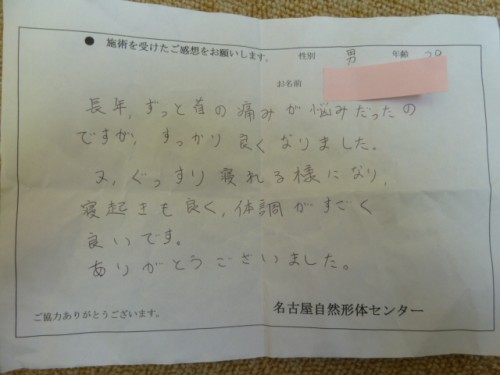 ● 施術を受けたご感想をお願いします。 性別 男 年齢 29
お名前
長年、ずっと首の痛みが悩みだったの
ですが、すっかり良くなりました。
又、ぐっすり寝れる様になり、
寝起きも良く、体調がすごく
良いです。
ありがとうございました。
ご協力ありがとうございます。 名古屋自然形体センター